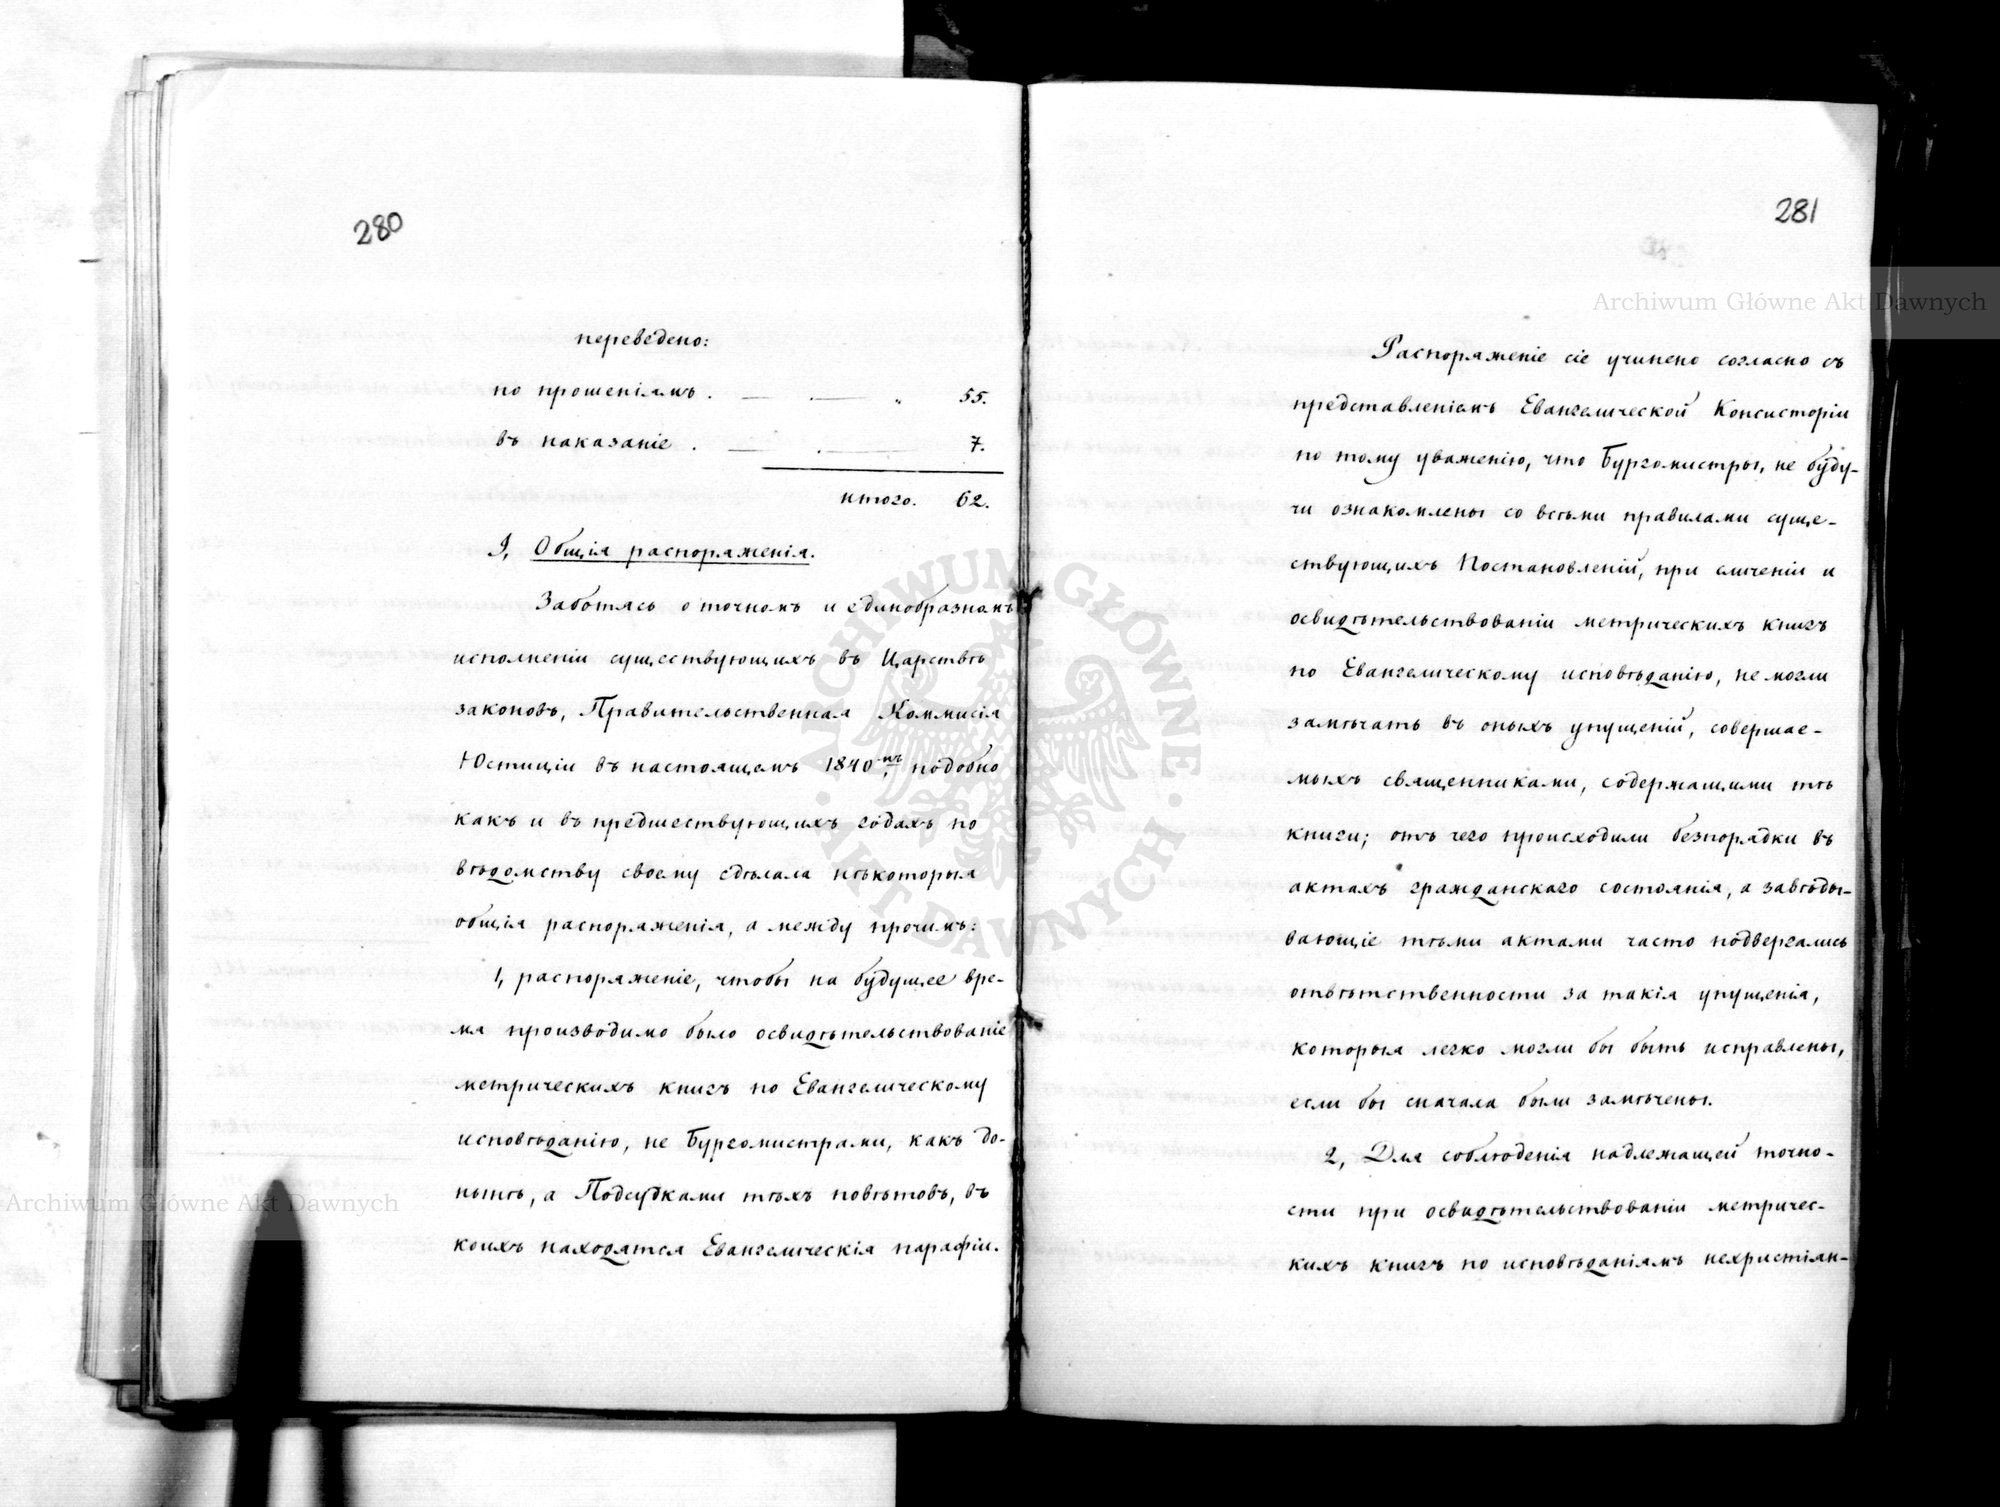 280
переведено:
по прошеніямъ . — . — „ 55.
въ наказаніе . — . — 7.
итого. 62.
I, Общія распоряженія.
Заботясь о точномъ и единобразномъ
исполненіи существующихъ въ Царствѣ
законовъ, Правительственная Коммисія
Юстиціи въ настоящемъ 1840-мъ, подобно
какъ и въ предшествующихъ годахъ по
вѣдомству своему сдѣлала нѣкоторыя
общія распоряженія, а между прочимъ:
1, распоряженіе, чтобы на будущее вре-
мя производимо было освидѣтельствованіе
метрическихъ книгъ по Евангелическому
исповѣданію, не Бургомистрами, какъ до-
нынѣ, а Подсудками тѣхъ повѣтовъ, въ
коихъ находятся Евангелическія парафіи.
281
Распоряженіе сіе учинено согласно съ
представленіемъ Евангелической Консисторіи
по тому уваженію, что Бургомистры, не буду-
чи ознакомлены со всѣми правилами суще-
ствующихъ Постановленій, при сличеніи и
освидѣтельствованіи метрическихъ книгъ
по Евангелическому исповѣданію, не могли
замѣчать въ оныхъ упущеній, совершае-
мыхъ священниками, содержащими тѣ
книги; отъ чего происходили безпорядки въ
актахъ гражданскаго состоянія, а завѣды-
вающіе тѣми актами часто подвергались
отвѣтственности за такія упущенія,
которыя легко могли бы быть исправлены,
если бы сначала были замѣчены.
2, Для соблюденія надлежащей точно-
сти при освидѣтельствованіи метричес-
кихъ книгъ по исповѣданіямъ нехристіян-
Archiwum Główne Akt Dawnych
Archiwum Główne Akt Dawnych
ARCHIWUM GŁÓWNE
AKT DAWNYCH